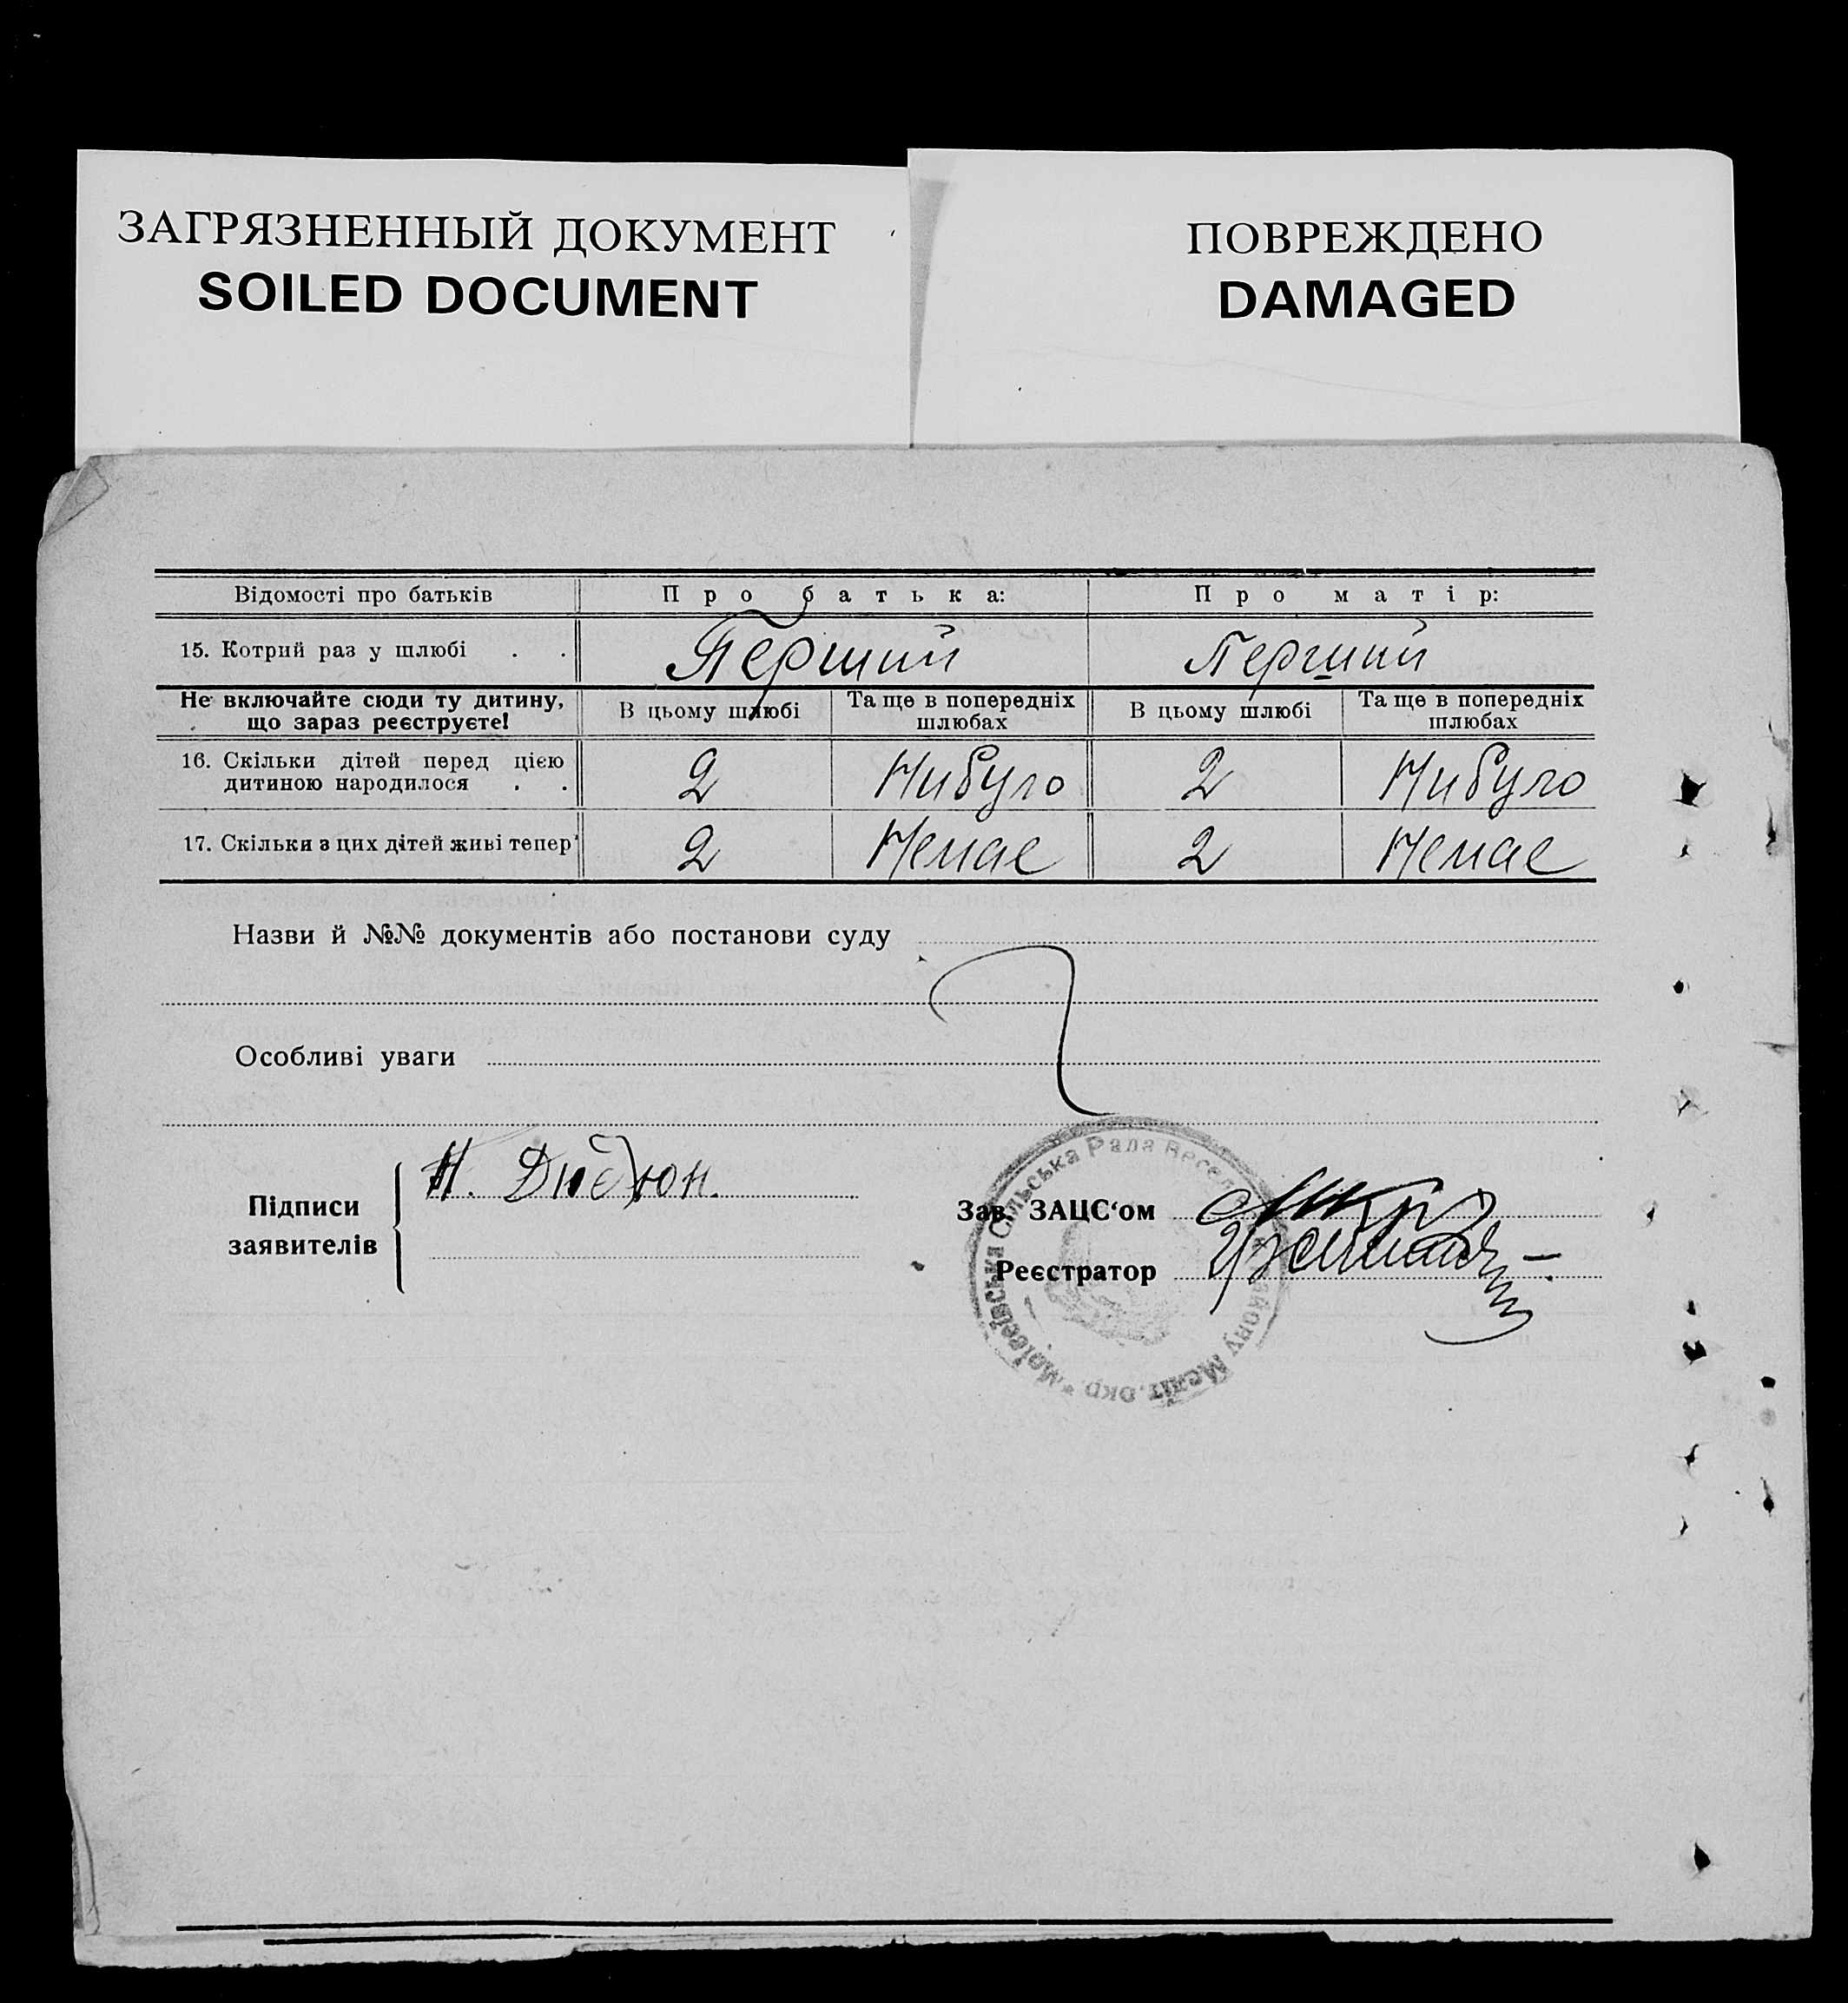 ЗАГРЯЗНЕННЫЙ ДОКУМЕНТ
SOILED DOCUMENT
ПОВРЕЖДЕНО
DAMAGED
Відомості про батьків Про батька: Про матір:
15. Котрий раз у шлюбі . . Перший Перший
Не включайте сюди ту дитину, що зараз реєструєте! В цьому шлюбі Та ще в попередніх шлюбах В цьому шлюбі Та ще в попередніх шлюбах
16. Скільки дітей перед цією
дитиною народилося . . 2 Нибуло 2 Нибуло
17. Скільки з цих дітей живі тепер 2 Немає 2 Немає
Назви й №№ документів або постанови суду
Особливі уваги
Підписи
заявителів
Н.
Зав. ЗАЦС‘ом
Реєстратор
Сільська Рада Меліт. окр.